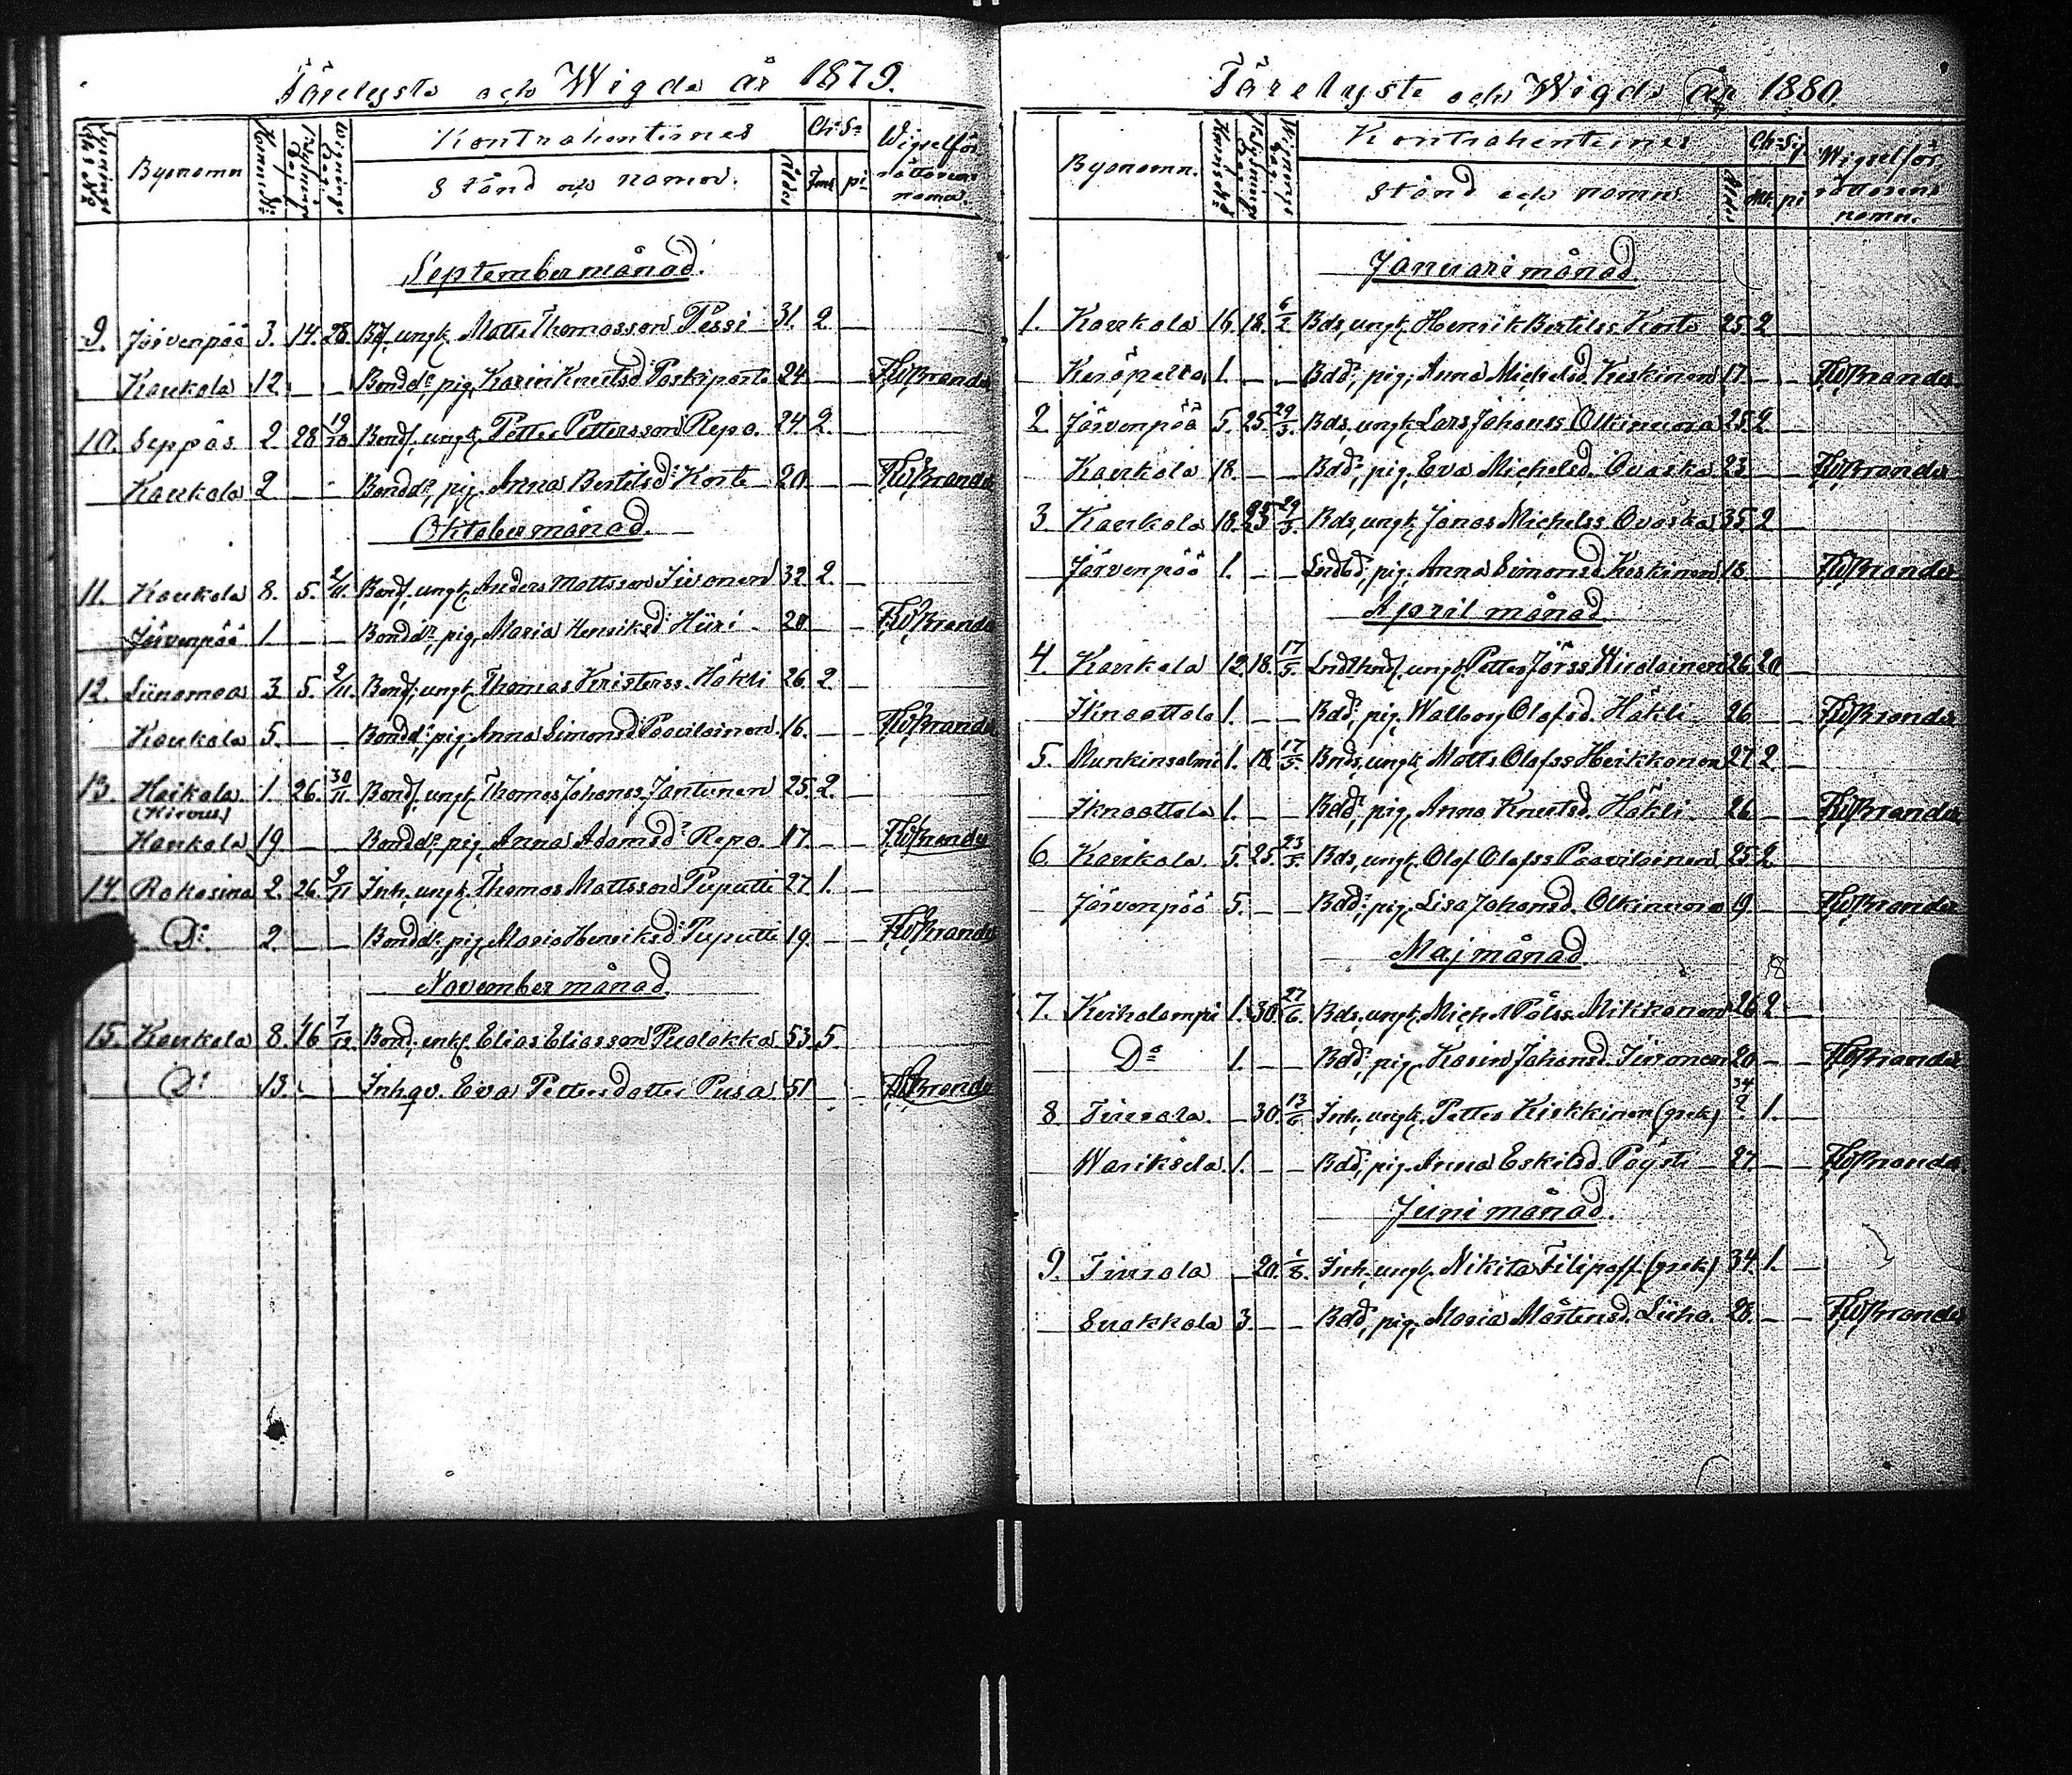 Förelyste och Wigde år 1879.
Byanamn Hemm. No Kontrahenternes Ch: Sn Wigselför-
Stånd och namn. Ålder pi rättarens
namn.
September månad.
9. Järvenpää 3. 14. 28 Bds. ungk. Matts Thomasson Pessi 31. 2.
Kaukola 12. Bondd:r, pig. Karin Knutsd:r Paskiparta 24 KWBrander
10. Seppäs 2 28 19/10 Bonds. ungk. Petter Pettersson Repo. 24. 2.
Kaukola 2 Bondd:r, pig. Anna Bertilsd:r Korte 20 KWBrander
Oktober månad.
11. Kaukola 8. 5. 2/11. Bonds. ungk. Anders Mattsson Iivonen 32. 2.
Järvenpää 1. Bondd:r, pig. Maria Henriksd:r Hüri 20 KWBrander
12. Liinamaa 3 5. 2/11. Bonds. ungk. Thomas Kristerss. Häkli 26. 2.
Kaukola 5. Bondd:r, pig. Anna Simonsd:r Paavilainen 16. KWBrander
13. Heikola 1. 26. 30/11. Bonds. ungk. Thomas Johanss. Jantunen 25. 2.
(Kirvus)
Kaukola 19. Bondd:r, pig. Anna Adamsd:r Repo. 17. KWBrander
14. Rakosina 2. 26. 9/11 Inh. ungk. Thomas Mattsson Puputti 27. 1.
D:o 2. Bondd:r pig. Maria Henriksd:r Puputti 19. KWBrander
November månad.
15. Kaukola 8. 16 7/12 Bond. enkl. Elias Eliasson Pualakka 53. 5.
D:o 13. Inh. qv. Eva Pettersdotter Pusa 51 KWBrander
Förelyste och Wigde År 1880.
Byanamn. Hemm. No Kontrahenternes Ch: Sy Wigselför-
Stånd och namn Ålder pi rättarens
namn.
Januari månad
1. Kaukola 16. 18. 6/2 Bds. ungk. Henrik Bertilss. Korte 25 2
Keräpelto 1. Bdd:r, pig. Anna Michelsd. Keskinen 17 KWBrander
2. Järvenpää 5. 25. 29/3. Bds. ungk. Lars Johanss. Olkinuora 25 2
Kaukola 18. Bdd:r pig. Eva Michelsd. Ovaska 23 KWBrander
3. Kaukola 18. 25 29/3. Bds. ungk. Jonas Michelss. Ovaska 35 2
Järvenpää 1. pig. Anna Simonsd. Keskinen 18 KWBrander
April månad
4. Kaukola 12. 18. 17/5. ungk. Petter Jörss. Nicolainen 26 20
Iknaattala 1. Bdd:r, pig. Walborg Olofsd. Häkli 26 KWBrander
5. Munkinsalmi 1. 18. 17/5. Bnds. ungk. Matts Olofss. Heikkonen 27 2
Iknaattala 1. Bdd:r pig. Anna Knutsd. Häkli 26 KWBrander
6. Kaukola. 5. 25. 23/5. Bds. ungk. Olof Olofss. Paavilainen 25 2
Järvenpää 5. Bdd:r pig. Lisa Johansd. Olkinuora 19 KWBrander
Maj månad.
7. Keiholampi 1. 30. 27/6. Bds. ungk. Michel Pålss. Mikkonen 26 2
D:o 1. Bdd:r pig. Karin Johansd. Iivonen 20 KWBrander
8. Tiurala. 30. 13/6. Inh. ungk. Petter Kirkkinen (grek) 34 1.
Warikselä. 1. Bdd:r, pig. Anna Eskilsd. Pöysti 27 KWBrander
Juni månad.
9. Tiurala 20. 1/8. Inh. ungk. Nikita Filipoff (grek) 34. 1.
Suokkala 3. Bdd:r, pig. Maria Mårtensd. Liiha. 28. KWBrander